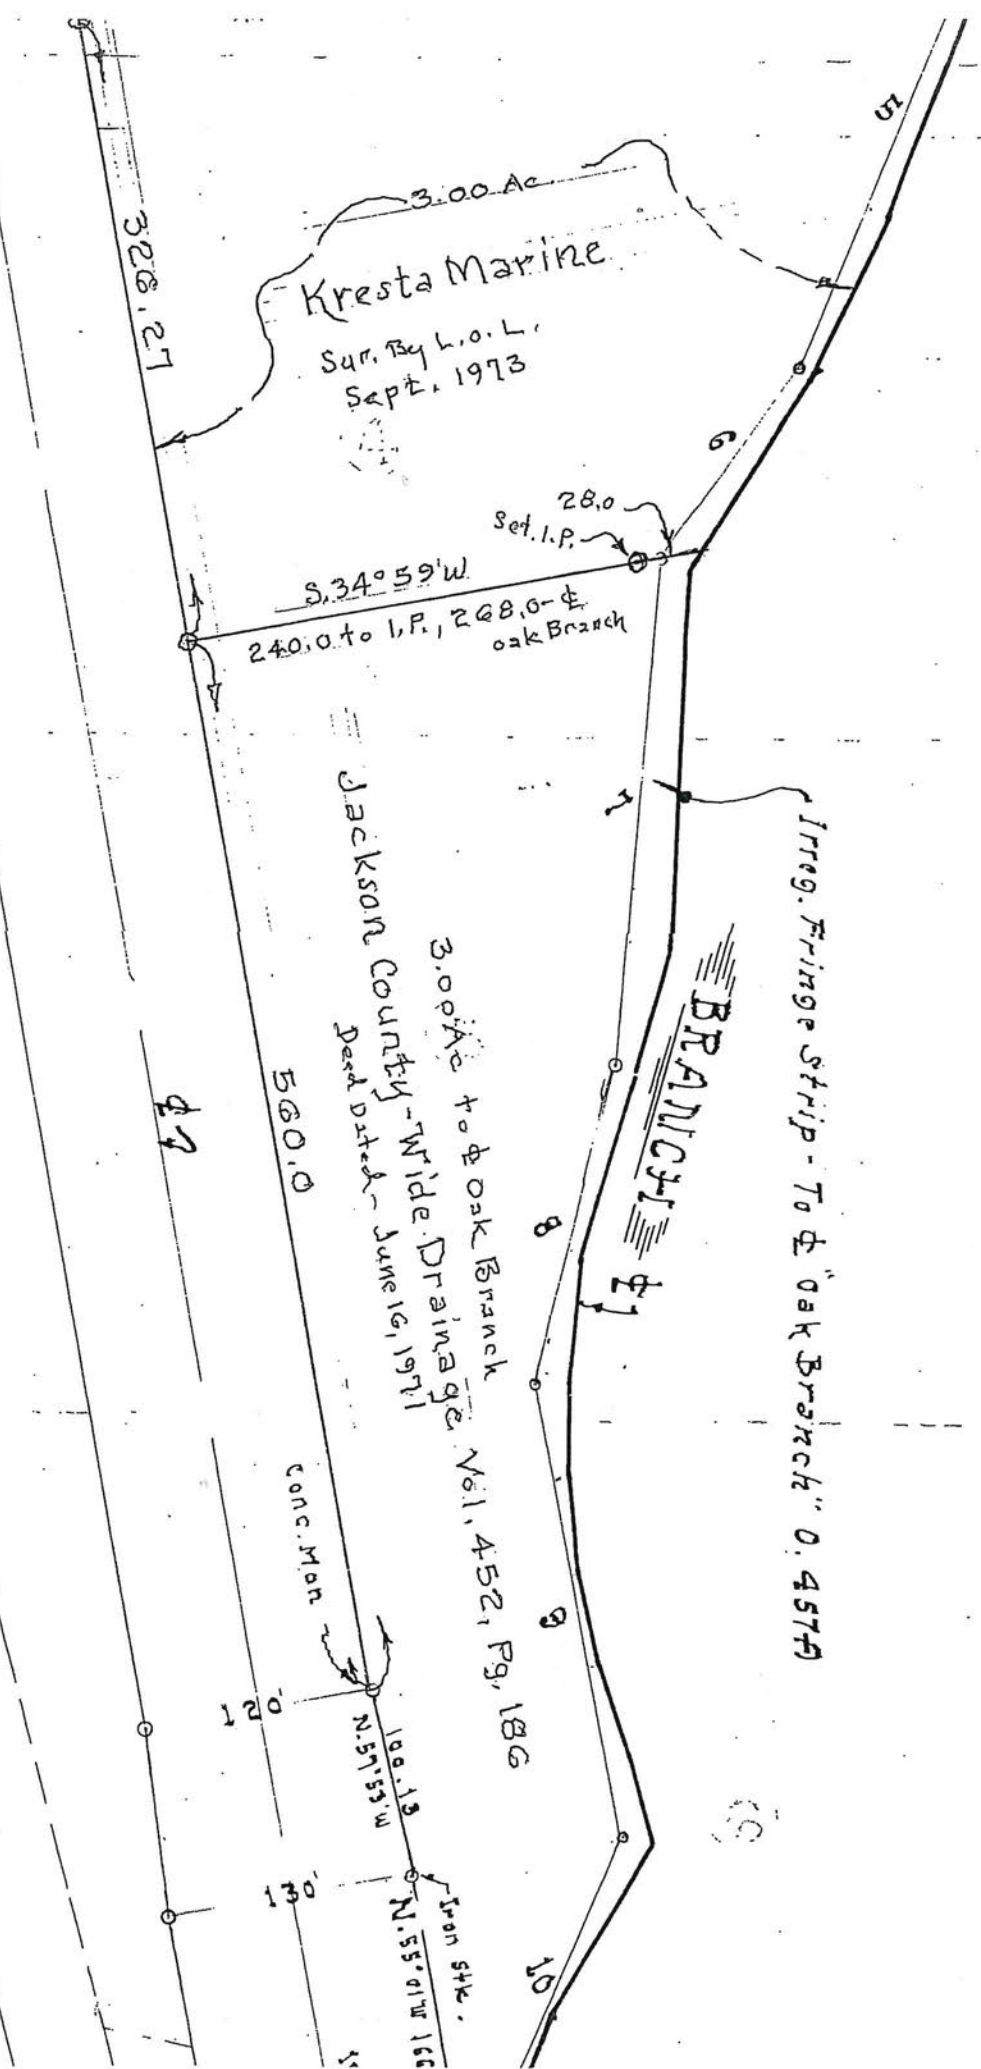 5
3.00 Ac.
Kresta Marine
Sur. By L.O.L.
Sept. 1973
326.27
6
28.0
Set. I.P.
S.34°59'W
240.0 to I.P., 268.0-℄
Oak Branch
7
Irreg. Fringe Strip - To ℄ "Oak Branch" 0.457A
BRANCH
℄
3.00 Ac to ℄ Oak Branch
Jackson County-Wide Drainage Vol, 452, Pg, 186
Deed Dated - June 16, 1971
560.0
℄
8
9
Conc. Mon
120'
100.13
N.57°53'W
130'
Iron Stk.
N.55°01'W 166
10